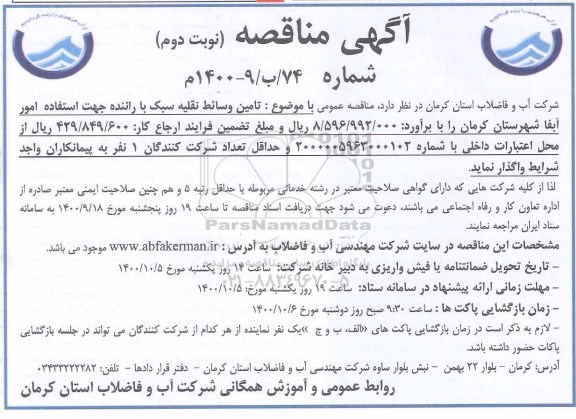 آگهی مناقصه (نوبت دوم)
شماره ۷۴/ب/۹-۱۴۰۰م
شرکت آب و فاضلاب استان کرمان در نظر دارد، مناقصه عمومی با موضوع : تامین وسائط نقلیه سبک با راننده جهت استفاده امور
آبفا شهرستان کرمان را با برآورد: ۸/۵۹۶/۹۹۲/۰۰۰ ریال و مبلغ تضمین فرایند ارجاع کار: ۴۲۹/۸۴۹/۶۰۰ ریال از
محل اعتبارات داخلی با شماره ۲۰۰۰۰۰۵۹۶۳۰۰۰۱۰۲ و حداقل تعداد شرکت کنندگان ۱ نفر به پیمانکاران واجد
شرایط واگذار نماید.
لذا از کلیه شرکت هایی که دارای گواهی صلاحیت معتبر در رشته خدماتی مربوطه با حداقل رتبه ۵ و هم چنین صلاحیت ایمنی معتبر صادره از
اداره تعاون کار و رفاه اجتماعی می باشند، دعوت می شود جهت دریافت اسناد مناقصه تا ساعت ۱۹ روز پنجشنبه مورخ ۱۴۰۰/۹/۱۸ به سامانه
ستاد ایران مراجعه نمایند.
مشخصات این مناقصه در سایت شرکت مهندسی آب و فاضلاب به آدرس : www.abfakerman.ir موجود می باشد.
- تاریخ تحویل ضمانتنامه یا فیش واریزی به دبیر خانه شرکت: ساعت ۱۴ روز یکشنبه مورخ ۱۴۰۰/۱۰/۵
- مهلت زمانی ارائه پیشنهاد در سامانه ستاد: ساعت ۱۹ روز یکشنبه مورخ: ۱۴۰۰/۱۰/۵
- زمان بازگشایی پاکت ها : ساعت ۹:۳۰ صبح روز دوشنبه مورخ ۱۴۰۰/۱۰/۶
- لازم به ذکر است در زمان بازگشایی پاکت های «الف، ب و ج »یک نفر نماینده از هر کدام از شرکت کنندگان می تواند در جلسه بازگشایی
پاکات حضور داشته باشد.
آدرس: کرمان - بلوار ۲۲ بهمن - نبش بلوار ساوه شرکت مهندسی آب و فاضلاب کرمان - دفتر قرار دادها - تلفن: ۰۳۴۳۳۲۲۲۲۸۲
روابط عمومی و آموزش همگانی شرکت آب و فاضلاب استان کرمان
ParsNamadData
۰۲۱-۸۸۳۴۹۶۷۰-۵